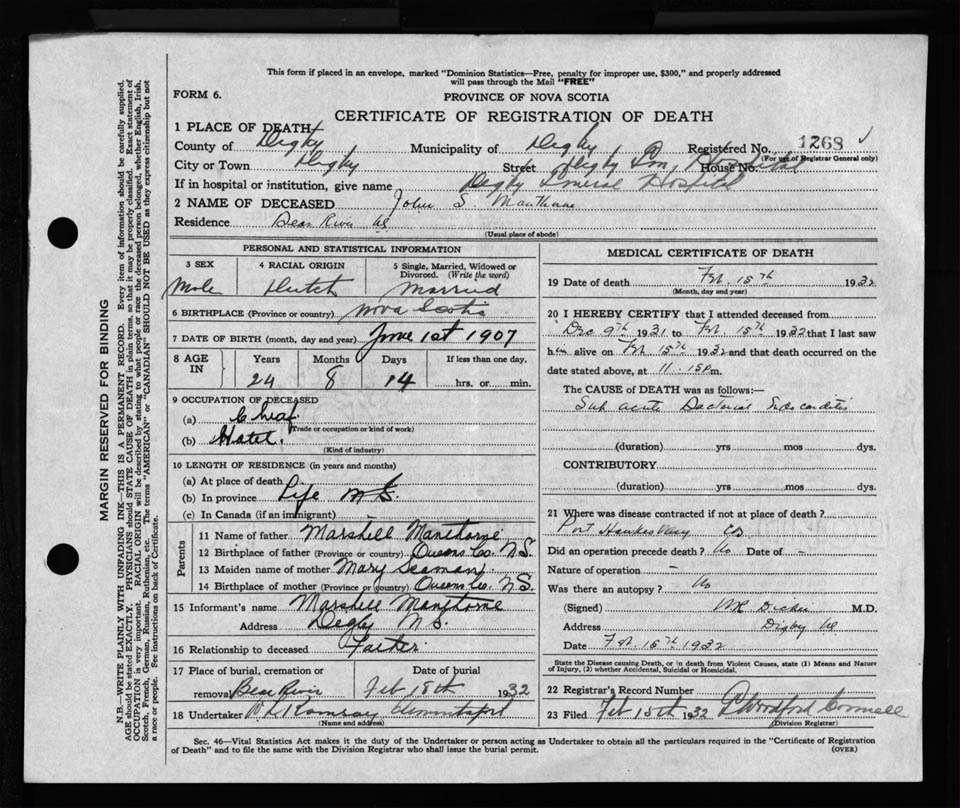 This form if placed in an envelope, marked "Dominion Statistics—Free, penalty for improper use, $300," and properly addressed
will pass through the Mail "FREE"
FORM 6.
PROVINCE OF NOVA SCOTIA
CERTIFICATE OF REGISTRATION OF DEATH
1 PLACE OF DEATH
County of Digby Municipality of Digby Registered No. 1268
(For use of Registrar General only)
City or Town Digby Street Digby Gen. Hospital House No.
If in hospital or institution, give name Digby General Hospital
2 NAME OF DECEASED John S. Manthorne
Residence Bear River NS
(Usual place of abode)
PERSONAL AND STATISTICAL INFORMATION
3 SEX 4 RACIAL ORIGIN 5 Single, Married, Widowed or Divorced. (Write the word)
Male Dutch Married
6 BIRTHPLACE (Province or country) Nova Scotia
7 DATE OF BIRTH (month, day and year) June 1st 1907
8 AGE IN Years Months Days If less than one day,
24 8 14 hrs. or min.
9 OCCUPATION OF DECEASED
(a) Cheaf
(Trade or occupation or kind of work)
(b) Hotel.
(Kind of industry)
10 LENGTH OF RESIDENCE (in years and months)
(a) At place of death
(b) In province Life N.S.
(c) In Canada (if an immigrant)
Parents
11 Name of father Marshell Manthorne
12 Birthplace of father (Province or country) Queens Co. N.S.
13 Maiden name of mother Mary Seaman
14 Birthplace of mother (Province or country) Queens Co. N.S.
15 Informant's name Marshell Manthorne
Address Digby N S.
16 Relationship to deceased Father
17 Place of burial, cremation or Date of burial
removal Bear River Feb 18th 1932
18 Undertaker
(Name and address)
MEDICAL CERTIFICATE OF DEATH
19 Date of death Feb. 15th 1932
(Month, day and year)
20 I HEREBY CERTIFY that I attended deceased from
Dec 9th 1931 to Feb. 15th 1932 that I last saw
him alive on Feb 15th 1932 and that death occurred on the
date stated above, at 11.15 P m.
The CAUSE of DEATH was as follows:—
Sub acute Bacterial Endocarditis
(duration) yrs mos dys.
CONTRIBUTORY
(duration) yrs mos dys.
21 Where was disease contracted if not at place of death?
Port Hawkesbury CB
Did an operation precede death? No Date of -
Nature of operation -
Was there an autopsy? No
(Signed) Dickie M.D.
Address Digby NS
Date Feb. 15th 1932
State the Disease causing Death, or in death from Violent Causes, state (1) Means and Nature
of Injury, (2) whether Accidental, Suicidal or Homicidal.
22 Registrar's Record Number
23 Filed Feb 15th 1932 Woodford Connell
(Division Registrar)
Sec. 46—Vital Statistics Act makes it the duty of the Undertaker or person acting as Undertaker to obtain all the particulars required in the "Certificate of Registration
of Death" and to file the same with the Division Registrar who shall issue the burial permit. (OVER)
MARGIN RESERVED FOR BINDING
N.B.—WRITE PLAINLY WITH UNFADING INK—THIS IS A PERMANENT RECORD. Every item of information should be carefully supplied.
AGE should be stated EXACTLY. PHYSICIANS should STATE CAUSE OF DEATH in plain terms, so that it may be properly classified. Exact statement of
OCCUPATION is very important. RACIAL ORIGIN will be described by stating to what people or race the deceased person belonged, whether English, Irish,
Scotch, French, German, Russian, Ruthenian, etc. The terms "AMERICAN" or "CANADIAN" SHOULD NOT BE USED as they express citizenship but not
a race or people. See instructions on back of Certificate.